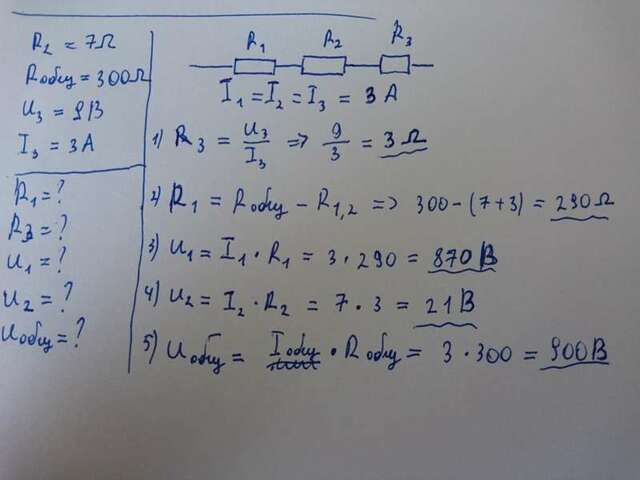 R₂ = 7Ω
Rобщ = 300Ω
U₃ = 9В
I₃ = 3А
R₁ = ?
R₃ = ?
U₁ = ?
U₂ = ?
Uобщ = ?
R₁ R₂ R₃
I₁ = I₂ = I₃ = 3 А
1) R₃ = U₃/I₃ => 9/3 = 3 Ω
2) R₁ = Rобщ - R₁,₂ => 300 - (7+3) = 290Ω
3) U₁ = I₁ · R₁ = 3 · 290 = 870 В
4) U₂ = I₂ · R₂ = 7 · 3 = 21 В
5) Uобщ = Iобщ · Rобщ = 3 · 300 = 900 В